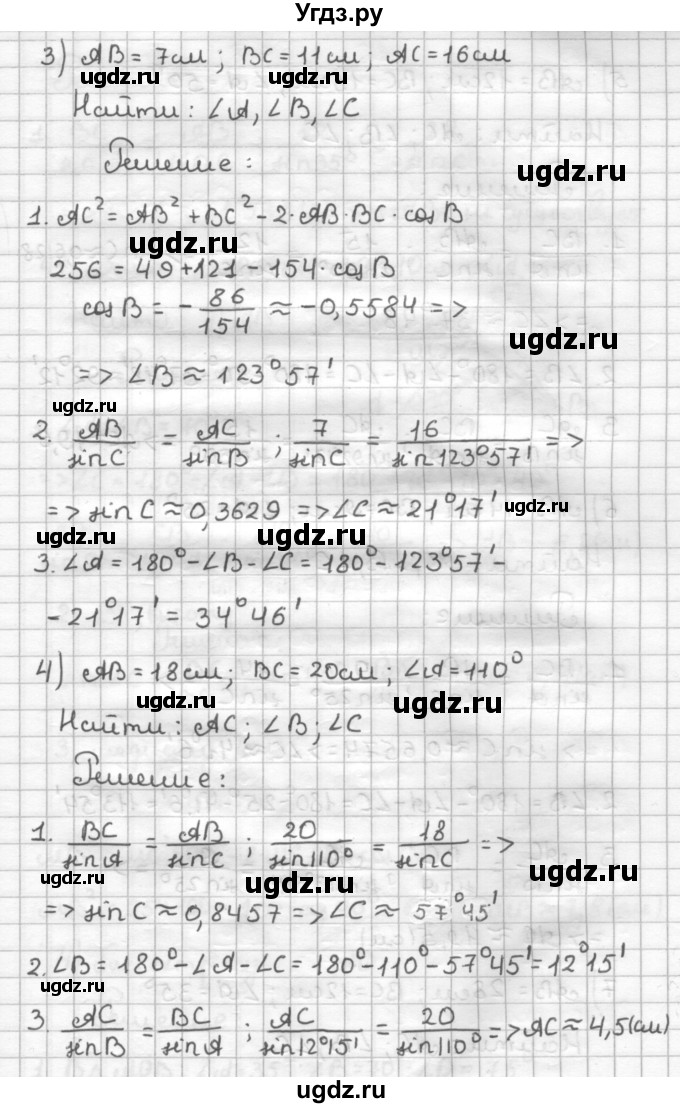 Угдз.ру
3) AB = 7см; BC = 11см; AC = 16см
ugdz.ru ugdz.ru
Найти: ∠A, ∠B, ∠C
Решение:
ugdz.ru
1. AC² = AB² + BC² - 2·AB·BC·cosB
ugdz.ru
256 = 49 + 121 - 154·cosB
cosB = - 86/154 ≈ -0,5584 =>
ugdz.ru ugdz.ru
=> ∠B ≈ 123°57'
ugdz.ru
2. AB/sinC = AC/sinB ; 7/sinC = 16/sin123°57' =>
=> sinC ≈ 0,3629 => ∠C ≈ 21°17'
ugdz.ru
ugdz.ru ugdz.ru
3. ∠A = 180° - ∠B - ∠C = 180° - 123°57' -
- 21°17' = 34°46'
ugdz.ru
4) AB = 18см; BC = 20см; ∠A = 110°
ugdz.ru ugdz.ru
Найти: AC; ∠B; ∠C
Решение:
1. BC/sinA = AB/sinC ; 20/sin110° = 18/sinC =>
ugdz.ru ugdz.ru ugdz.ru
=> sinC ≈ 0,8457 => ∠C ≈ 57°45'
2. ∠B = 180° - ∠A - ∠C = 180° - 110° - 57°45' = 12°15'
ugdz.ru ugdz.ru ugdz.ru
3 AC/sinB = BC/sinA ; AC/sin12°15' = 20/sin110° => AC ≈ 4,5(см)
ugdz.ru